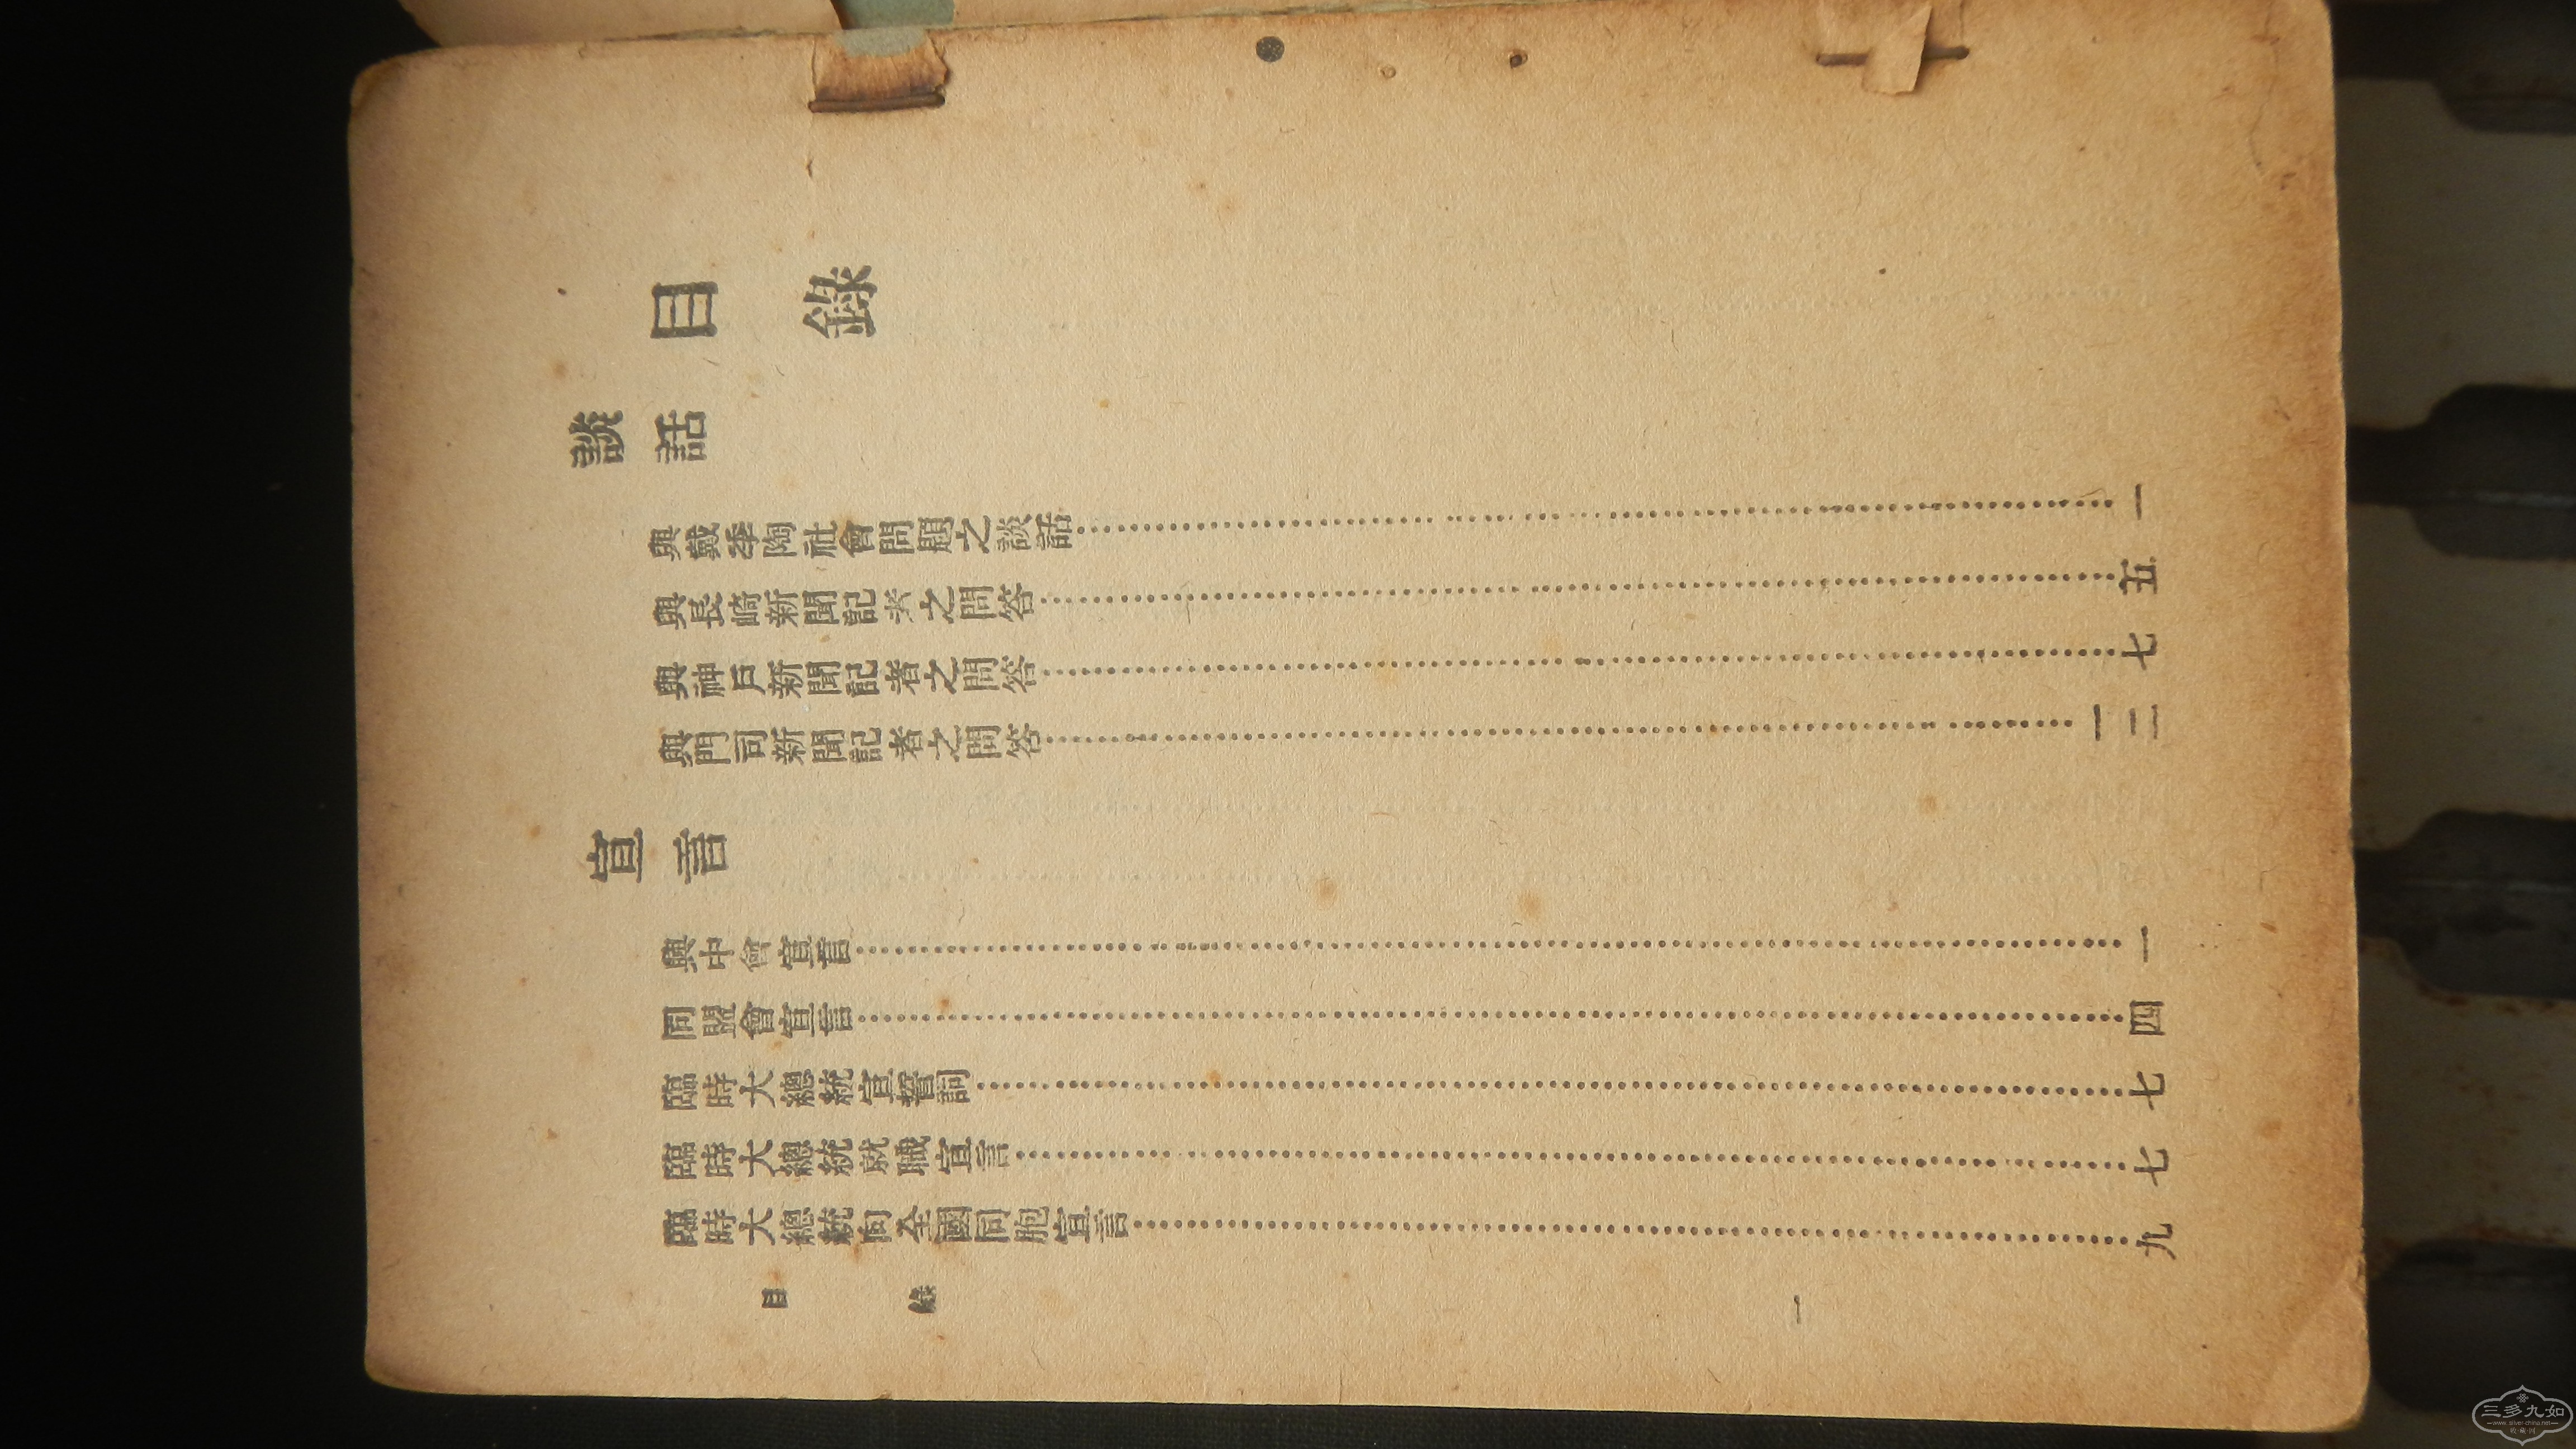 目錄
談話
與戴季陶社會問題之談話……一
與長崎新聞記者之問答……五
與神戶新聞記者之問答……七
與門司新聞記者之問答……一二
宣言
興中會宣言……一
同盟會宣言……四
臨時大總統宣誓詞……七
臨時大總統就職宣言……七
臨時大總統向全國同胞宣言……九
目錄 一
三多九如
www.silver-china.net
收·藏·网